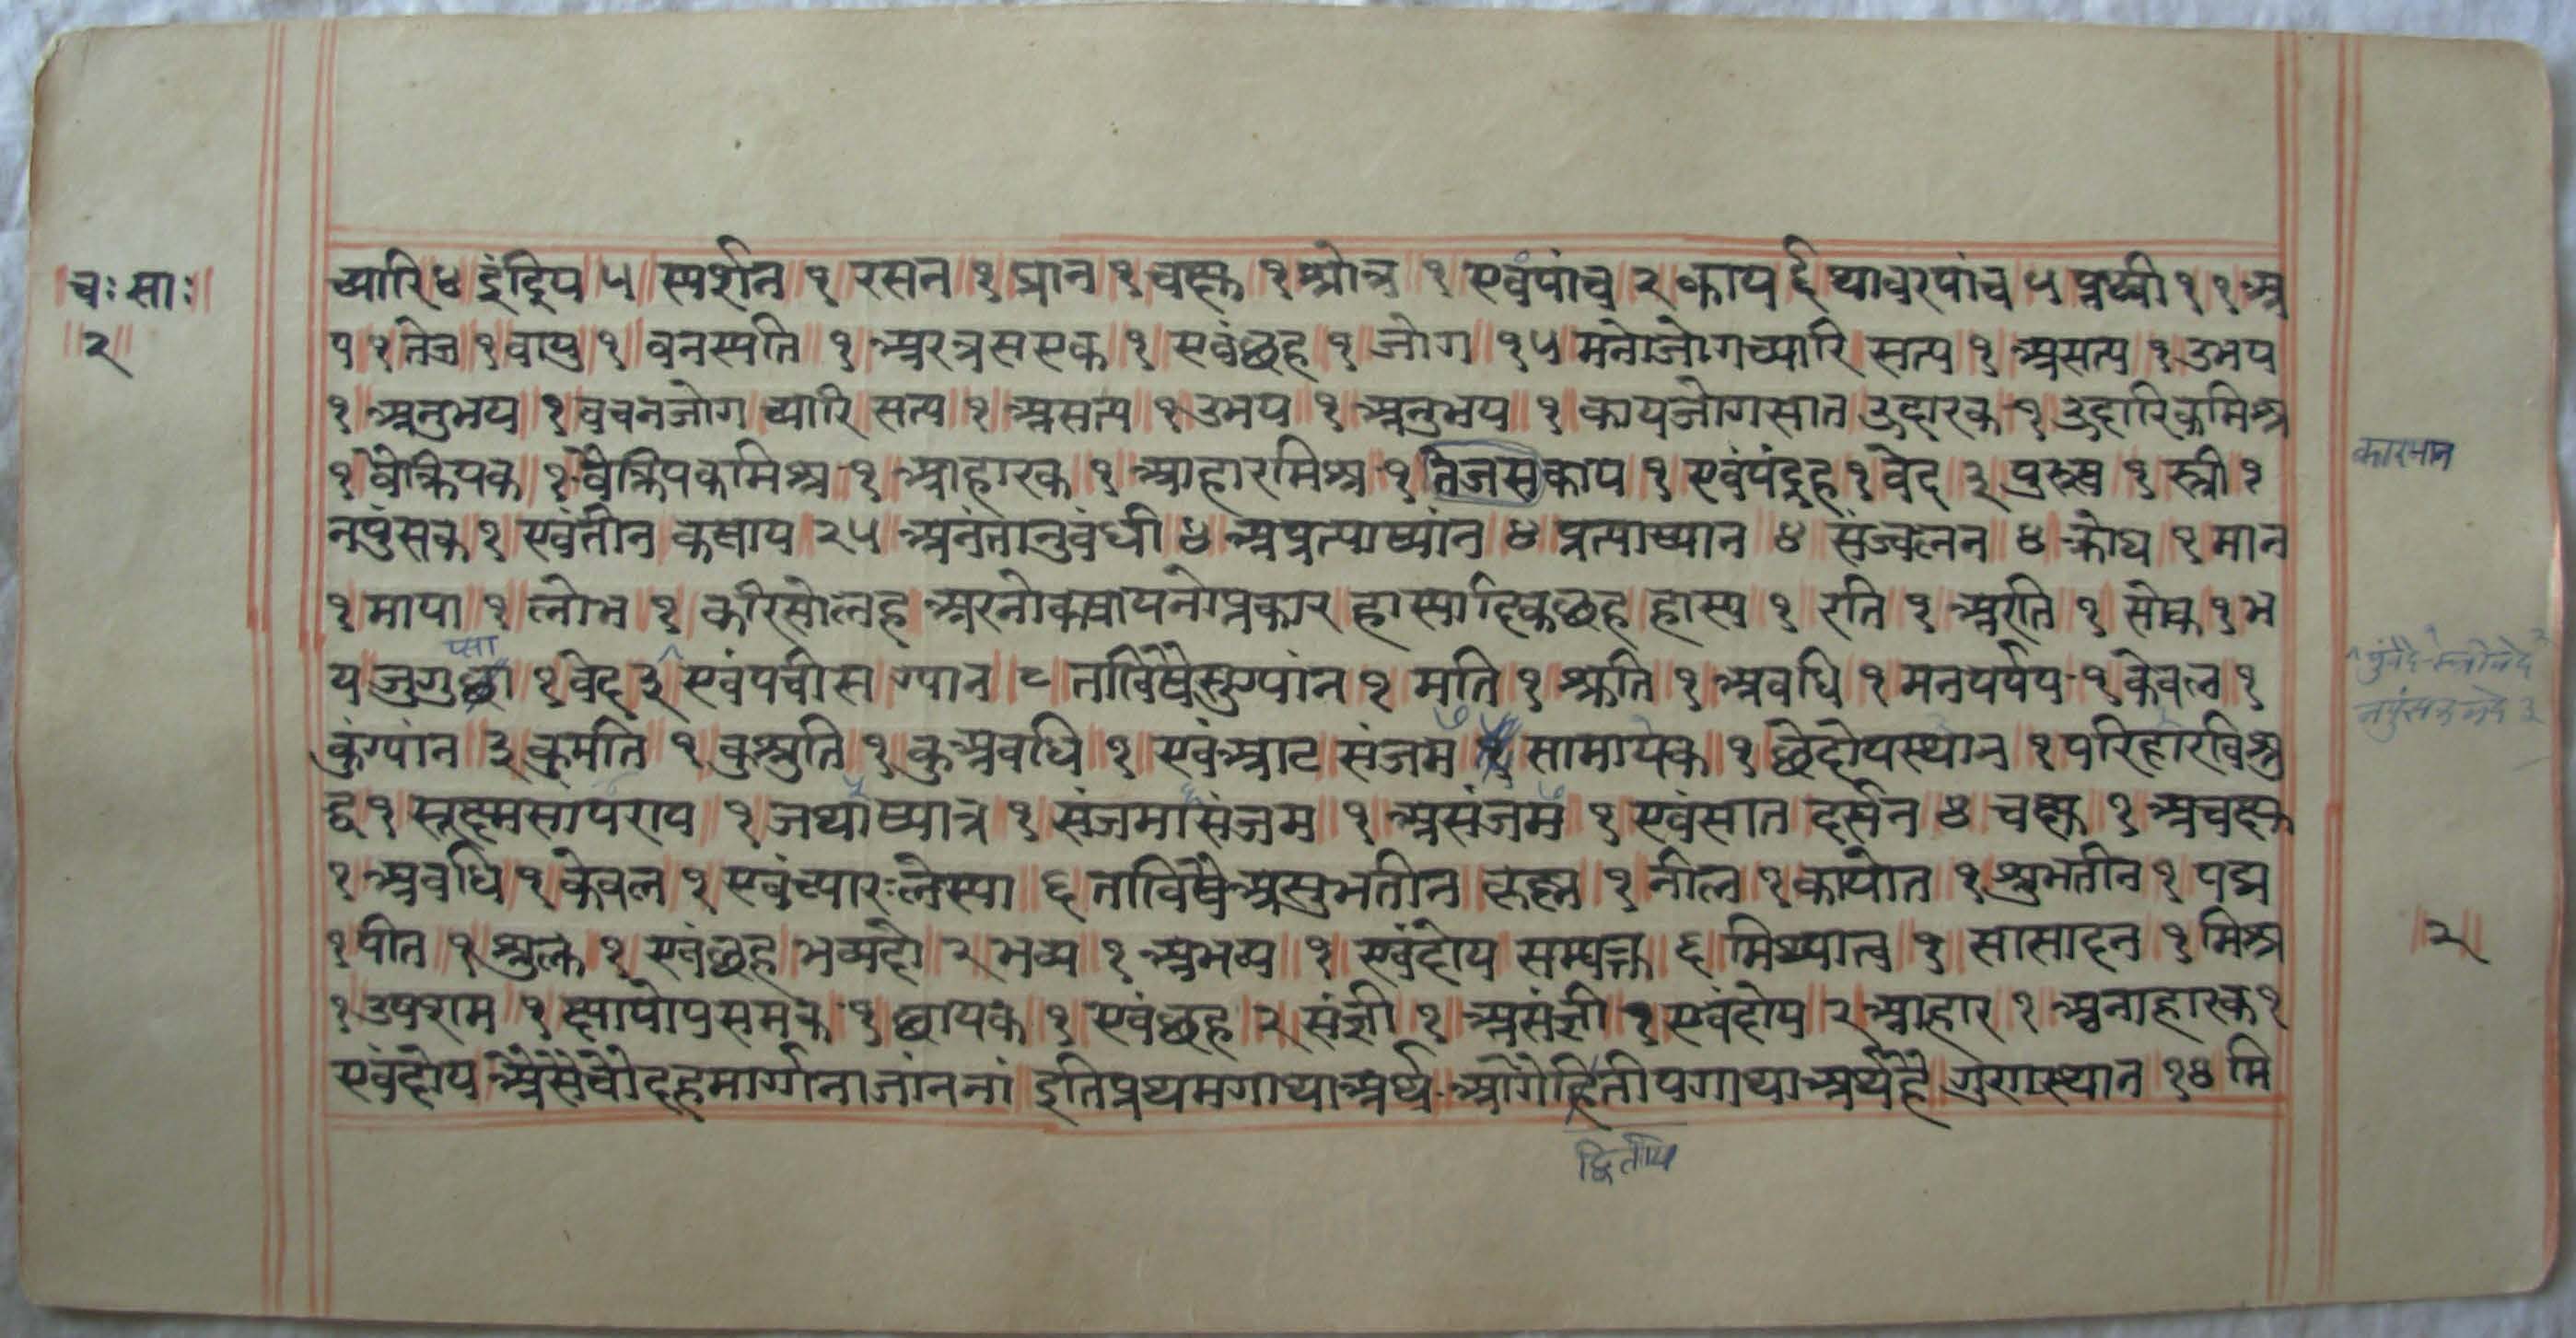 चः साः
२
च्यारि ४ इंद्रिय ५ स्पर्शन १ रसन १ घ्रान १ चक्षु १ श्रोत्र १ एवंपांच २ काय ६ थावरपांच ५ पृथ्वी १ १ अ
प १ तेज १ वायु १ वनस्पति १ अरत्रसएक १ एवंछह १ जोग १५ मनोजोगच्यारि सत्य १ असत्य १ उभय
१ अनुभय १ वचनजोग च्यारि सत्य १ असत्य १ उभय १ अनुभय १ कायजोगसात उदारक १ उदारिकमिश्र
१ वैक्रियक १ वैक्रियकमिश्र १ आहारक १ आहारमिश्र १ तेजसकाय १ एवंपंद्रह १ वेद ३ पुरुष १ स्त्री १
कारमान
नपुंसक १ एवंतीन कषाय २५ अनंतानुवंधी ४ अप्रत्याष्यांन ४ प्रत्याष्यान ४ संज्वलन ४ क्रोध १ मान
१ माया १ लोभ १ करिसोलह अरनोकषायनोप्रकार हास्यादिकछह हास्य १ रति १ अरति १ सोक १ भ
प्सा
य जुगुछा १ वेद ३ एवंपचीस ग्यान ८ ताविषैसुग्यांन १ मति १ श्रुति १ अवधि १ मनपर्यय १ केवल १
पुंवेद १ स्त्रीवेद २
नपुंसकवेद ३
कुंग्यांन ३ कुमति १ कुश्रुति १ कुअवधि १ एवंआट संजम ७ सामायक १ छेदोपस्थान १ परिहारविशु
द्ध १ सूक्ष्मसांपराय १ जथाष्यात्र १ संजमासंजम १ असंजम १ एवंसात दर्सन ४ चक्षु १ अचक्षु
१ अवधि १ केवल १ एवंच्यार लेस्या ६ ताविषैअसुभतीन कृष्न १ नील १ कापोत १ शुभतीन १ पद्म
१ पीत १ शुल्क १ एवंछह भव्यदो २ भव्य १ अभव्य १ एवंदोय सम्यक्त ६ मिथ्यात्व १ सासादन १ मिश्र
२
१ उपशम १ क्षायोपसमक १ छायक १ एवंछह २ संज्ञी १ असंज्ञी १ एवंदोय २ आहार १ अनाहारक १
एवंदोय अैसैचौदहमार्गनाजांननां इतिप्रथमगाथाअर्थ आगेद्वितीयगाथाअर्थहै गुणस्थान १४ मि
द्वितीय